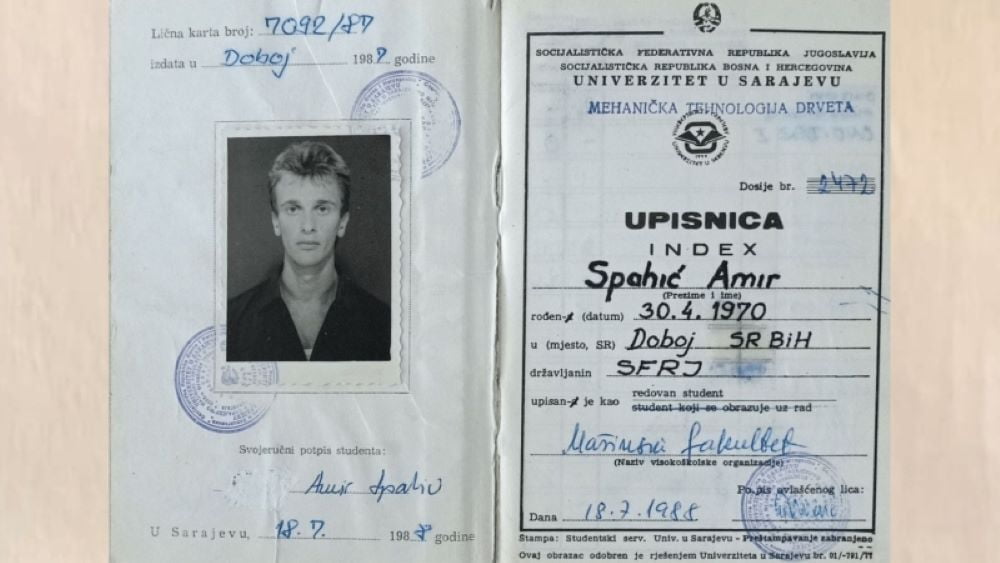 Lična karta broj: 7092/87
izdata u Doboj 1987 godine
Svojeručni potpis studenta:
Amir Spahić
U Sarajevu, 18.7. 1988 godine
SOCIJALISTIČKA FEDERATIVNA REPUBLIKA JUGOSLAVIJA
SOCIJALISTIČKA REPUBLIKA BOSNA I HERCEGOVINA
UNIVERZITET U SARAJEVU
MEHANIČKA TEHNOLOGIJA DRVETA
Dosije br. 2472
UPISNICA
INDEX
Spahić Amir
(Prezime i ime)
rođen-a (datum) 30.4.1970
u (mjesto, SR) Doboj SR BiH
državljanin SFRJ
upisan-a je kao redovan student
student koji se obrazuje uz rad
Mašinski fakultet
(Naziv visokoškolske organizacije)
Potpis ovlašćenog lica:
Dana 18.7.1988
Štampa: Studentski serv. Univ. u Sarajevu - Preštampavanje zabranjeno
Ovaj obrazac odobren je rješenjem Univerziteta u Sarajevu br. 01/-791/77